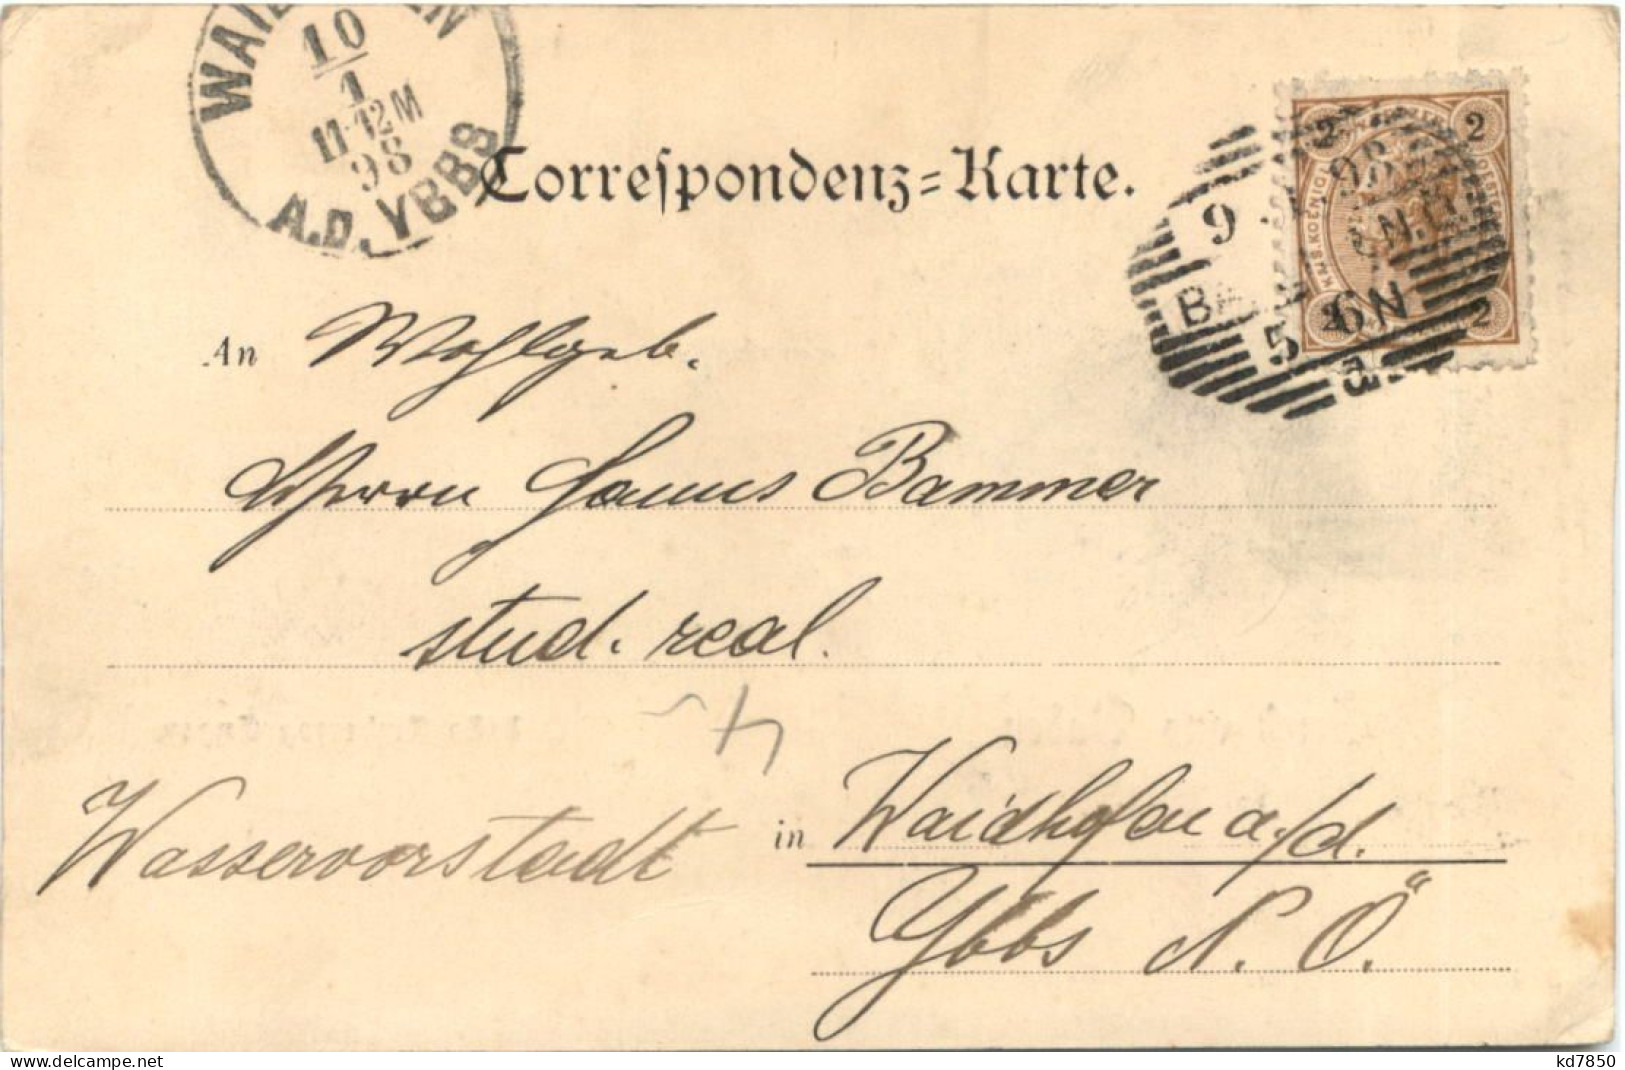 WAID EN
10
1
11-12M
98
A.D. YBBS
Correspondenz=Karte.
2 2
2 2
9 98
BA
5 6N
An Wohlgeb.
Herrn Hanns Bammer
stud. real.
Wasservorstadt
in Waidhofen a./d.
Ybbs N. Ö.
www.delcampe.net
kd7850